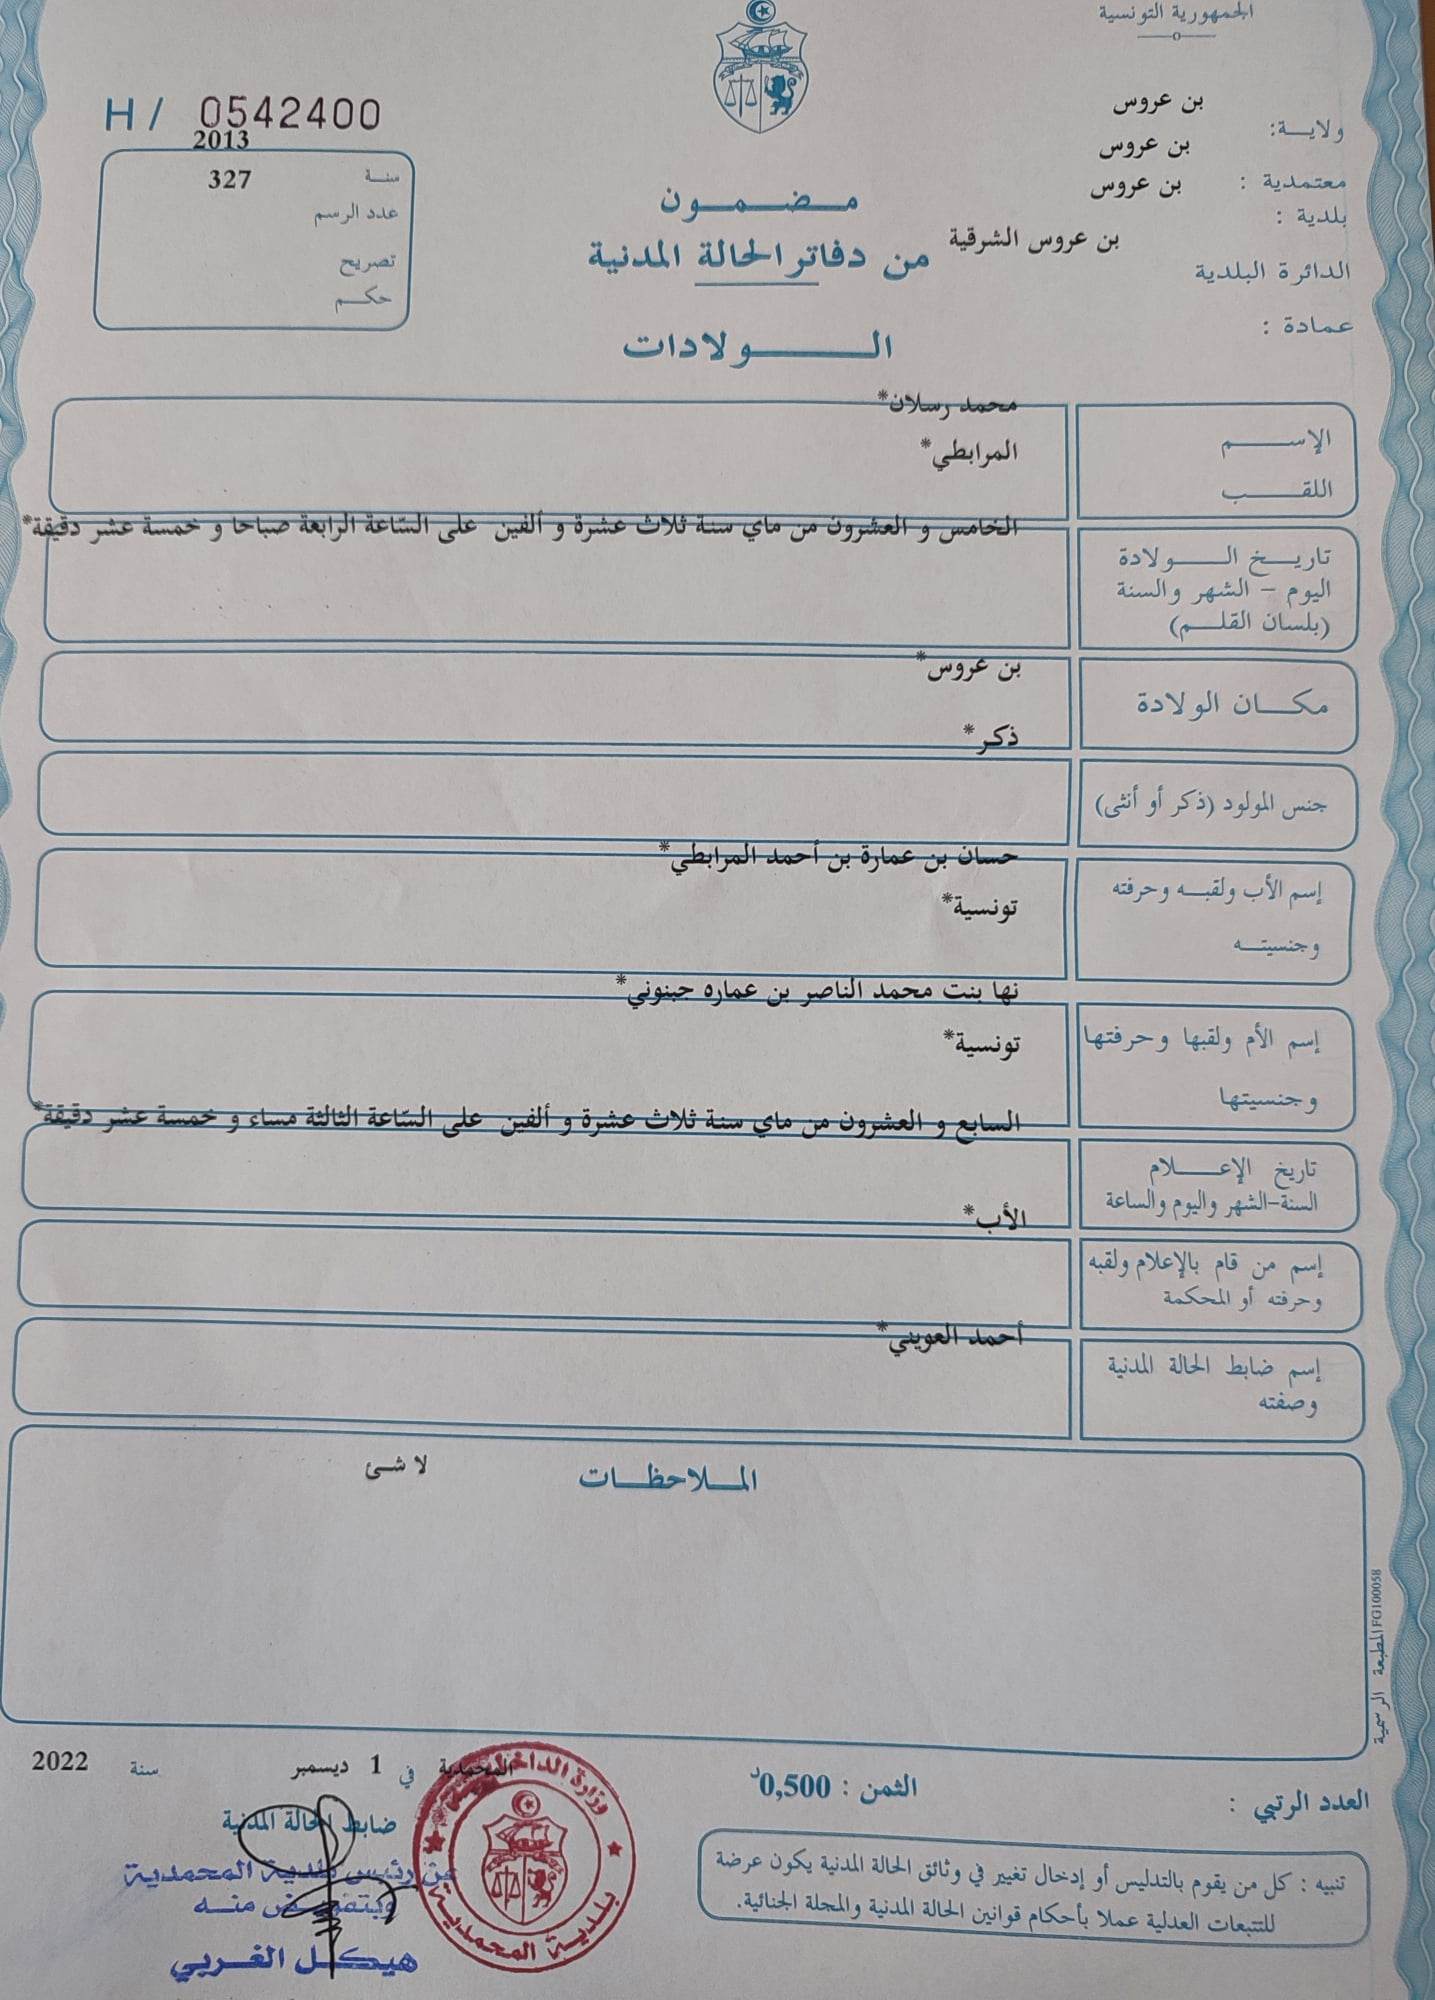 الجمهورية التونسية
H / 0542400
ولايـــة: بن عروس
معتمدية : بن عروس
بلدية : بن عروس
الدائرة البلدية بن عروس الشرقية
عمادة :
2013
سنـة 327
عدد الرسم
تصريح
حكــم
مـــضـــمـــون
من دفاتر الحالة المدنية
الـــــــولادات
الإســـــم محمد رسلان*
اللقـــب المرابطي*
تاريـــخ الـــــولادة
اليوم – الشهر والسنة
(بلسان القلـــم)
الخامس و العشرون من ماي سنة ثلاث عشرة و ألفين على السّاعة الرابعة صباحا و خمسة عشر دقيقة*
مكـــان الولادة بن عروس*
جنس المولود (ذكر أو أنثى) ذكر*
إسم الأب ولقبـــه وحرفته حسان بن عمارة بن أحمد المرابطي*
وجنسيتـــه تونسية*
إسم الأم ولقبها وحرفتها نها بنت محمد الناصر بن عماره حبنوني*
وجنسيتها تونسية*
السابع و العشرون من ماي سنة ثلاث عشرة و ألفين على السّاعة الثالثة مساء و خمسة عشر دقيقة*
تاريخ الإعـــــلام
السنة-الشهر واليوم والساعة
الأب*
إسم من قام بالإعلام ولقبه
وحرفته أو المحكمة
أحمد العويني*
إسم ضابط الحالة المدنية
وصفته
المـــلاحظـــات لا شئ
المطبعة الرسمية FG100058
المحمدية في 1 ديسمبر سنة 2022
ضابط الحالة المدنية
عن رئيس بلدية المحمدية
وبتفويض منـــه
هيكـــل الغربي
وزارة الداخلية
بلدية المحمدية
العدد الرتبي :
الثمن : 0,500د
تنبيه : كل من يقوم بالتدليس أو إدخال تغيير في وثائق الحالة المدنية يكون عرضة
للتتبعات العدلية عملا بأحكام قوانين الحالة المدنية والمجلة الجنائية.